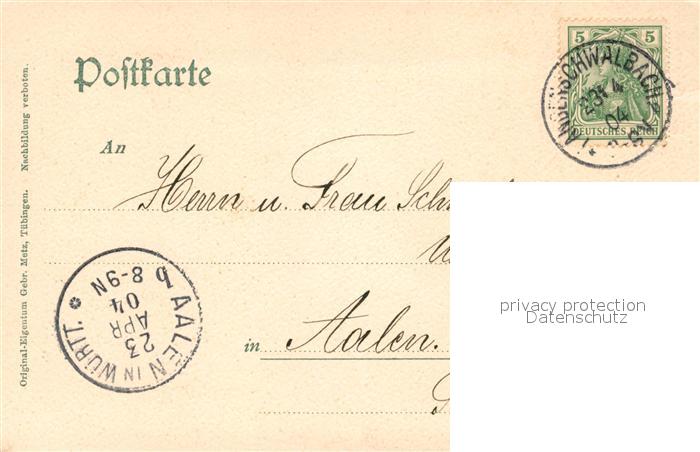 5 5
DEUTSCHES REICH
LANGENSCHWALBACH
23 4
04
Postkarte
An
Herrn u. Frau
in Aalen.
AALEN IN WÜRTT.
23
APR
04
8-9N
b
Original-Eigentum Gebr. Metz, Tübingen. Nachbildung verboten.
privacy protection
Datenschutz